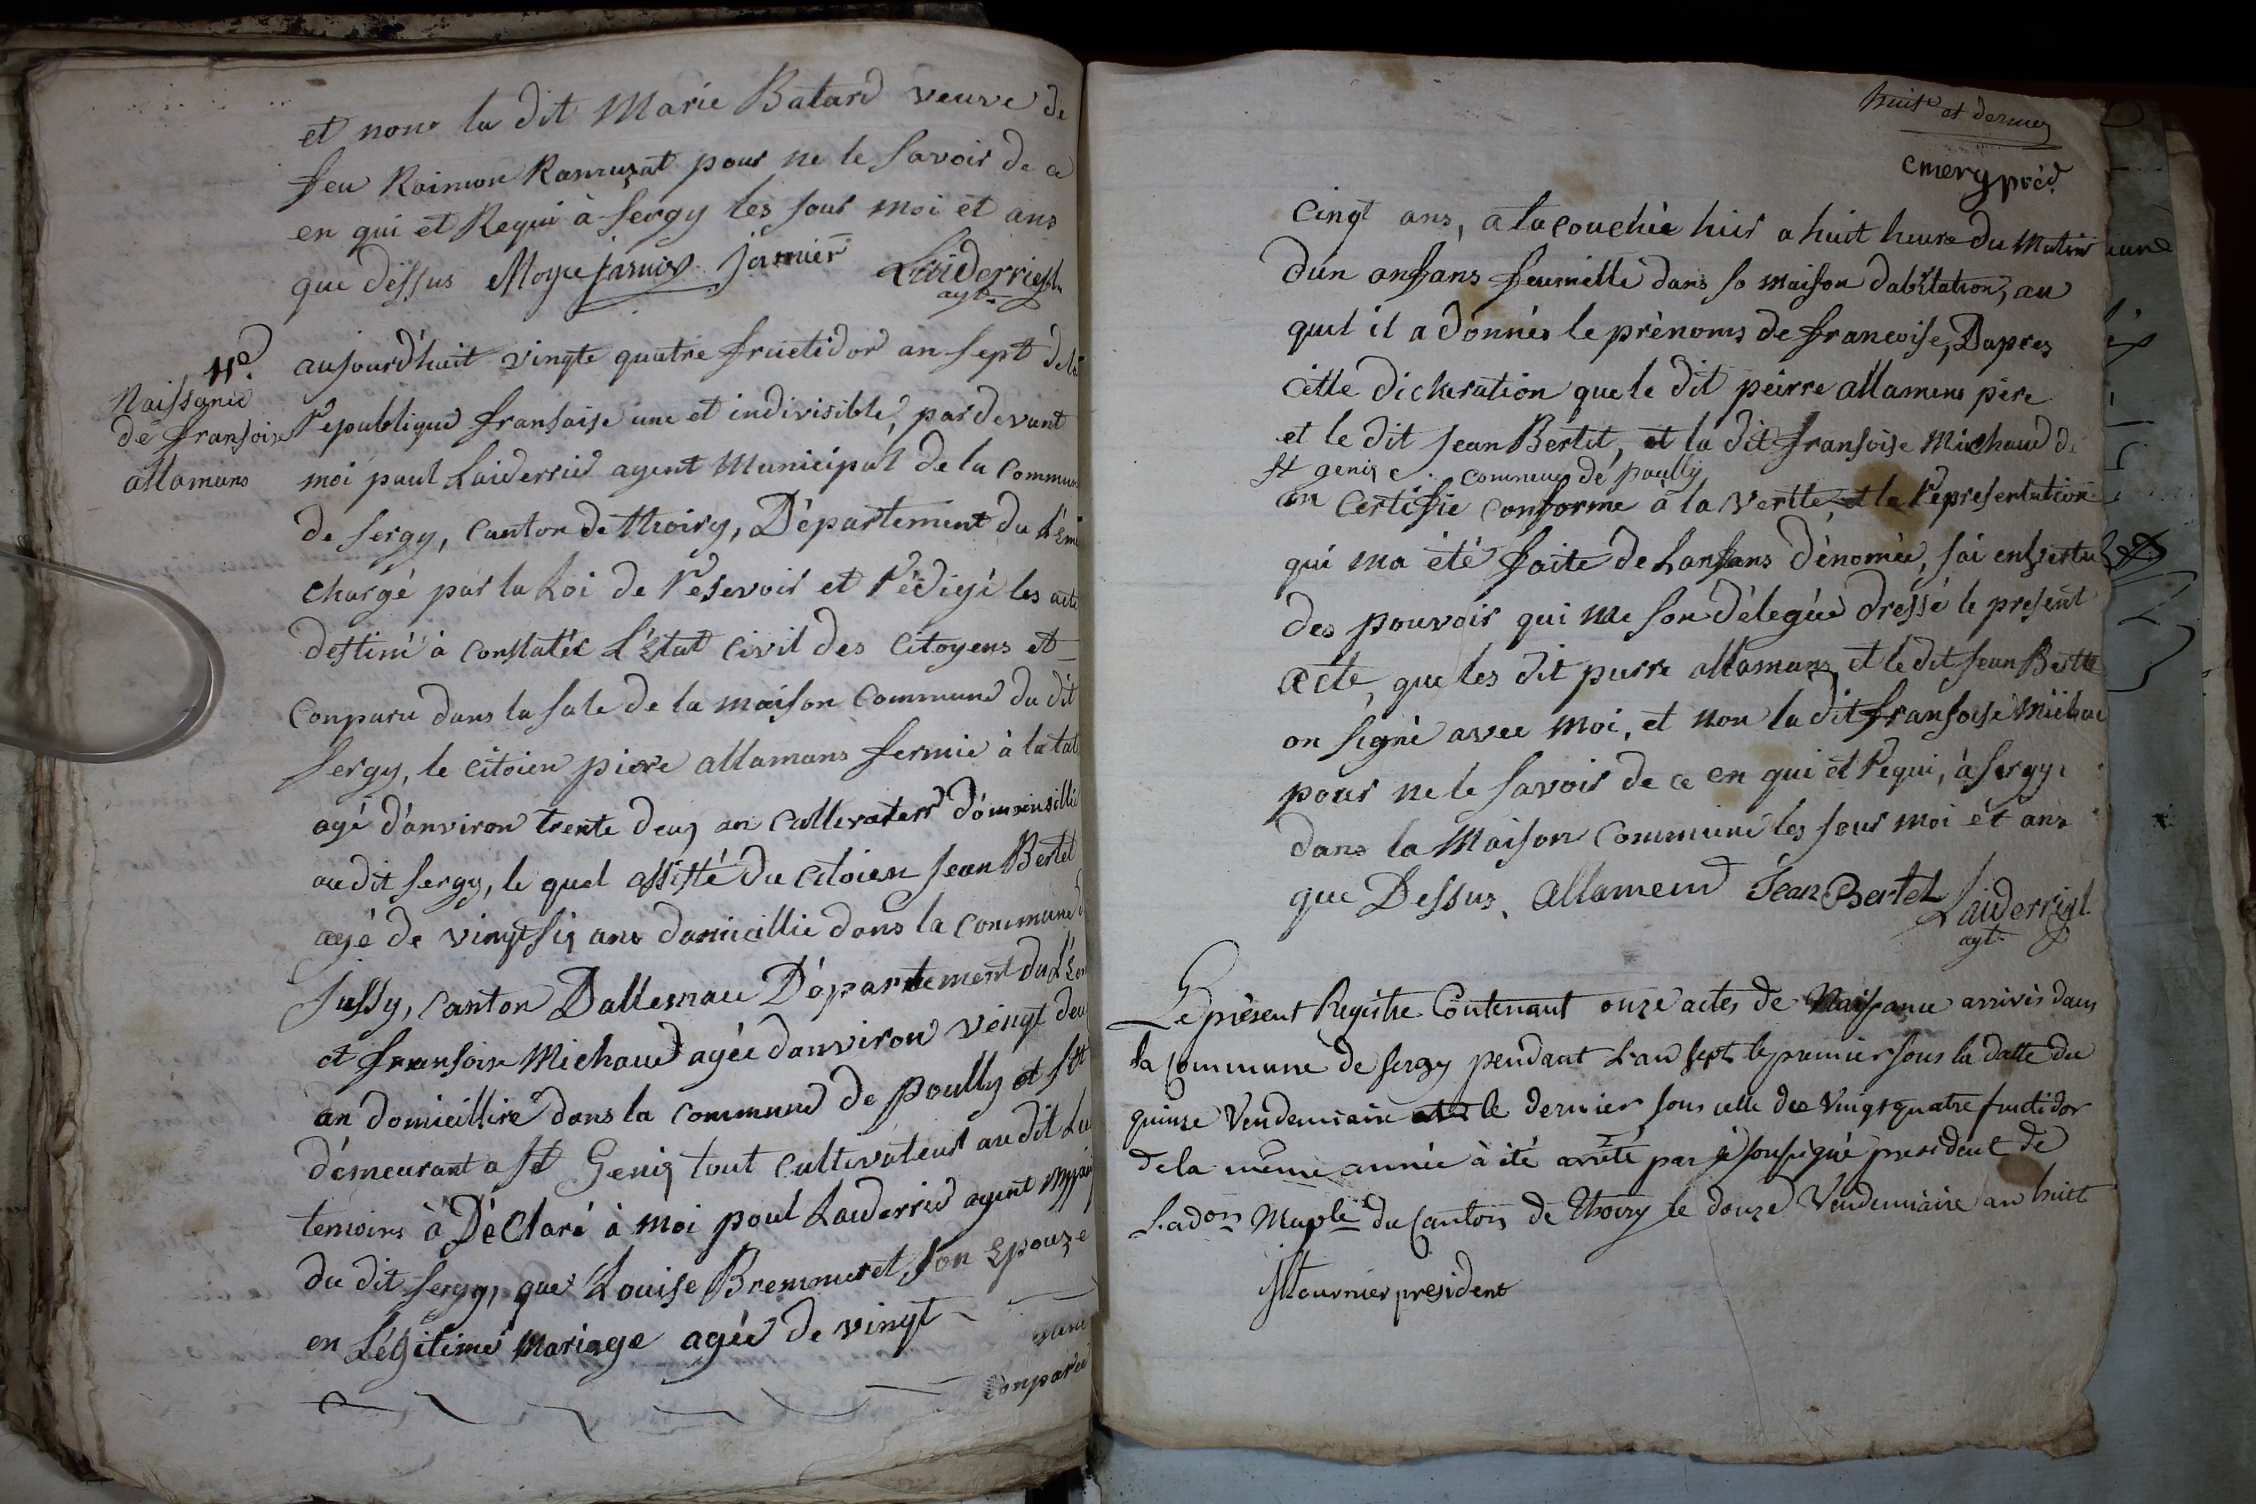 et non la dit Marie Batard veuve de
feu Raimon Ramuzat pour ne le savoir de ce
en qui et Requi à Sergy les jour moi et ans
que dessus Moyse Jarnier Jarnier Laiderrier
agt.
11e.
Naissance
de fransoise
allamans
aujourd'huit vingte quatre fructidor an sept de la
republique fransaise une et indivisible, pardevant
moi paul Laiderrier agent Municipal de la Commune
de Sergy, Canton de Thoiry, Département du Lém
chargé par la Loi de resevoir et rédigé les acte
destiné à constatér L'état civil des Citoyens et
Conparu dans la sale de la maison Commune du dit
sergy, le citoien piere allamans fermie à la tat
agé d'anviron trente deux an Cultevaterr dominsillié
au dit sergy, le quel assisté du citoien Jean Bertet
agé de vingt six ans domicillié dans la commune d
Jussy, Canton Dallemau Département du Lém
et fransoise Michaud agée danviron vingt deux
an domicillire dans la commune de poully et st
démeurant a st Genix tout cultivateur au dit Lu
temoins à Déclaré à moi poul Laiderrier agent
du dit sergy, que Louise Bremmeret, son Epouze
en Légitime mariage agée de vingt
conparue
huit et dernier
emery préd.
Cinqt ans, a la couchée hier a huit heure du Matin
d'un anfans feumelle dans sa maison dabitation, au
quel il a donnés le prénoms de francoise, Dapres
cette dicleration que le dit peirre allamens pére
et le dit Jean Bertet, et la dit fransoise Michaud de
st genix commune dé poully
an certifie conforme à la vertte, et la representation
qui ma été faite de Lanfans dénomée, j'ai en vertu
des pouvoir qui me son délegée dressé le present
acte, que les dit pierre allamans et le dit Jean Bertte
on signé avec moi, et non la dit fransoise Michau
pour ne le savoir de ce en qui et requi, à Sergy
dans la Maison Commune les jour moi et ans
que Dessus. allamend Jean Bertet Laiderrier
agt.
Le présent Registre Contenant onze actes de Naissance arrivés dans
la commune de Sergy pendant L'an sept le premier sous la datte du
quinse Vendemiaire et le dernier sous celle des Vingt quatre fructidor
de la même année à été arrêté par le soussigné president de
L'adon Muple du Canton de Thoiry le douze Vendemiaire an huit
Tournier president